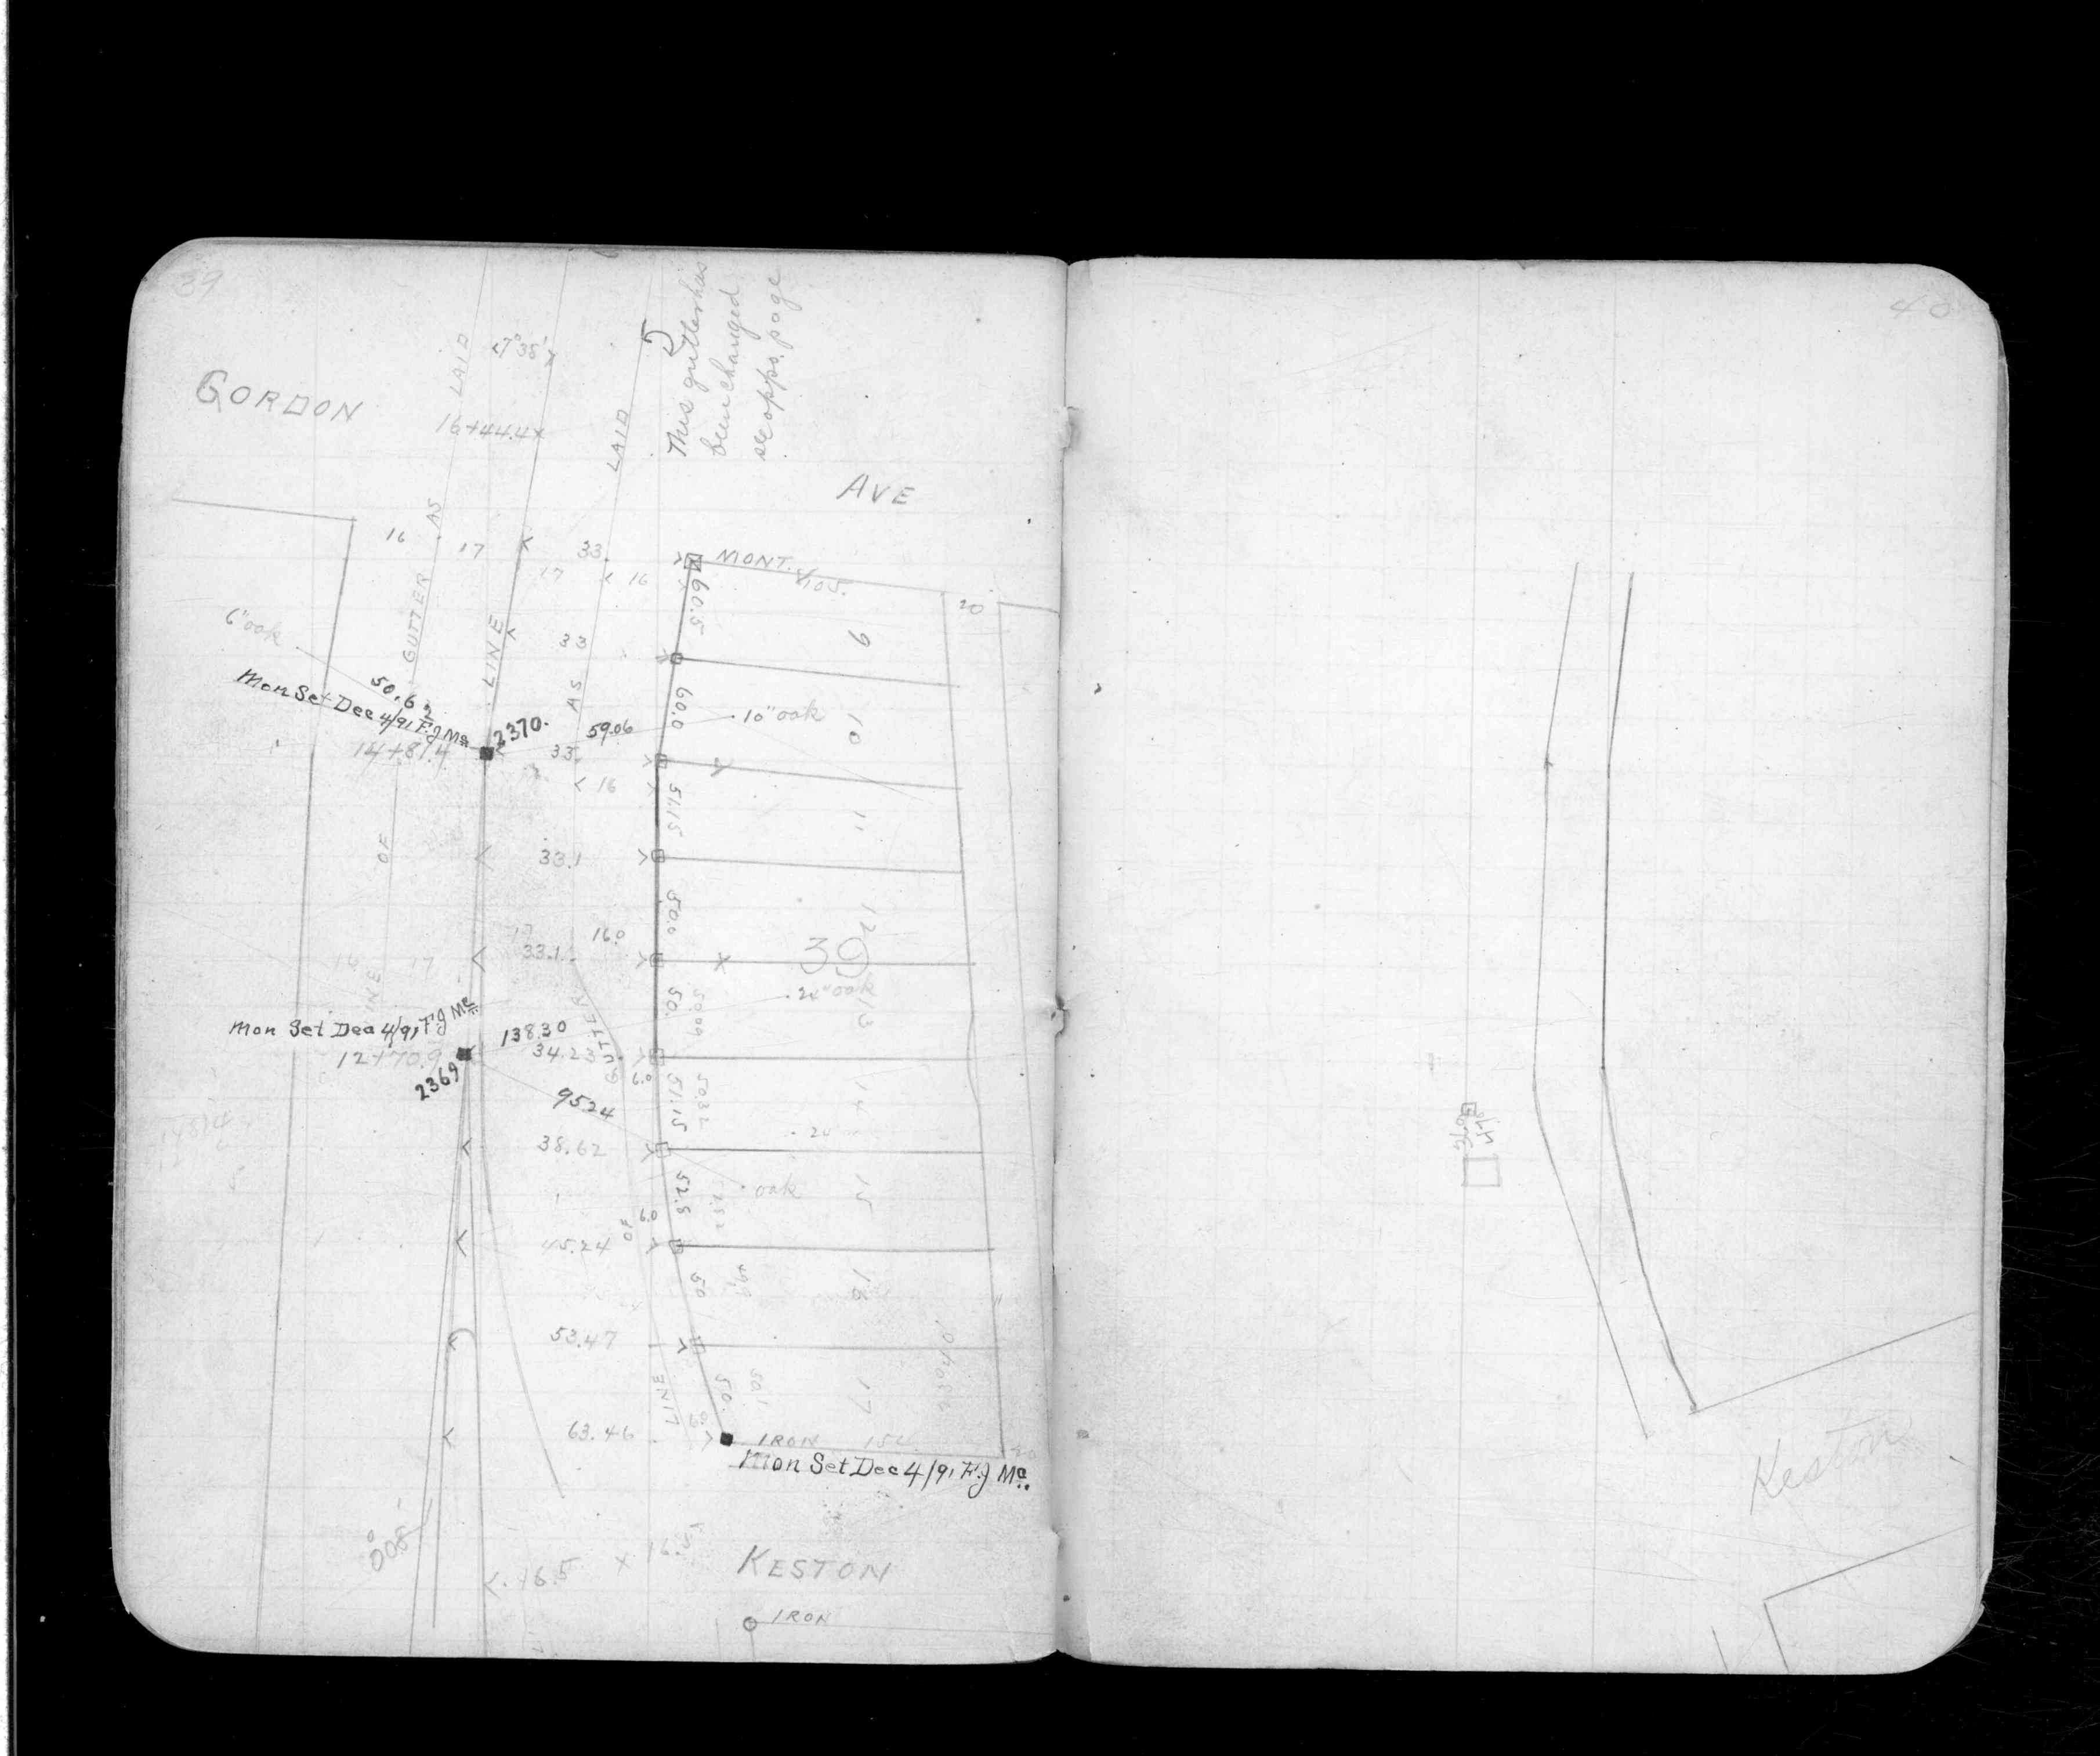 39
40
LAID
7°38'
GORDON
16+44.4
LAID
This gutter has
been changed
see oppo. page
AVE
AS
16
17
33.
MONT.
105.
17
16
20
GUTTER
LINE
60.5
9
6" oak
33
50.62
Mon Set Dec 4/91 F.J Mc
AS
60.0
10" oak
10
2370.
59.06
14+81.4
33.
16
51.15
11
OF
33.1
50.0
12
17
16.0
33.1
39
16
17
LINE
50.
50.09
24" oak
13
GUTTER
Mon Set Dec 4/91 F.J Mc
138.30
12+70.9
34.23
6.0
2369
51.15
50.32
14
95.24
14814
38.62
20
52.5
52.52
oak
15
6.0
OF
45.24
50
49.9
16
53.47
LINE
50.
50.1
17
63.46
IRON
Mon Set Dec 4/91 F.J Mc
16.5
KESTON
IRON
Keston